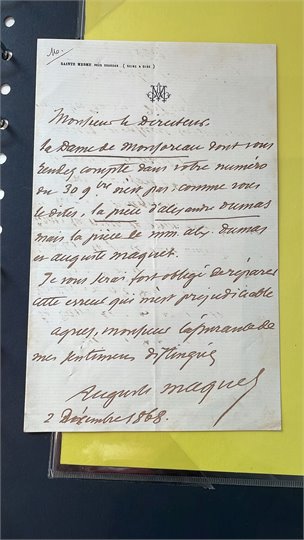 SAINTE MESME PAR DOURDAN (SEINE & OISE)
Monsieur le Directeur
la Dame de Monsoreau dont vous
rendez compte dans votre numéro
du 30 9bre n'est pas comme vous
le dites, la pièce d'alexandre Dumas
mais la pièce de mm. alex. dumas
et auguste maquet.
Je vous serai fort obligé de réparer
cette erreur qui m'est préjudiciable
agréez, monsieur l'assurance de
mes sentimens distingués
Auguste Maquet
2 Décembre 1868.